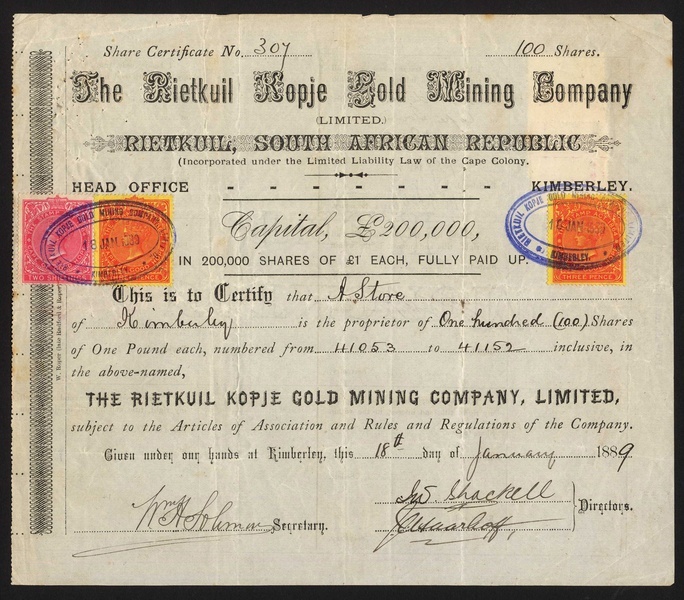 Share Certificate No. 307 100 Shares.
The Rietkuil Kopje Gold Mining Company
(LIMITED.)
RIETKUIL, SOUTH AFRICAN REPUBLIC
(Incorporated under the Limited Liability Law of the Cape Colony.
HEAD OFFICE - - - - - - - - KIMBERLEY.
RIETKUIL KOPJE GOLD MINING COMPANY
18 JAN 1889
KIMBERLEY.
RIETKUIL KOPJE GOLD MINING
JAN
KIMBERLEY.
THREE PENCE
Capital, £200,000,
IN 200,000 SHARES OF £1 EACH, FULLY PAID UP.
This is to Certify that A Stone
of Kimberley is the proprietor of One hundred (100) Shares
of One Pound each, numbered from 41053 to 41152 inclusive, in
the above-named,
THE RIETKUIL KOPJE GOLD MINING COMPANY, LIMITED,
subject to the Articles of Association and Rules and Regulations of the Company.
Given under our hands at Kimberley, this 18th day of January 1889
Shackell
Directors.
Secretary.